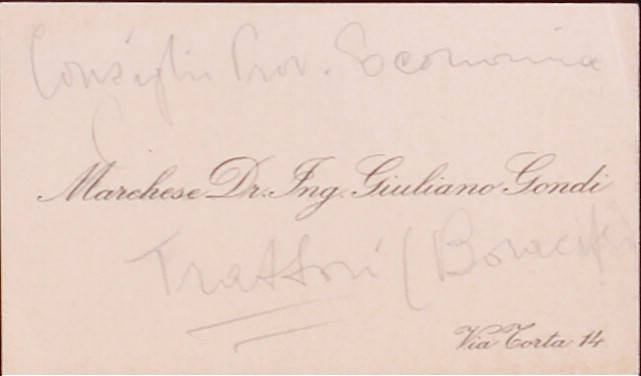 Consiglio Prov. Economia
Marchese Dr. Ing. Giuliano Gondi
Trattori (
Via Torta 14